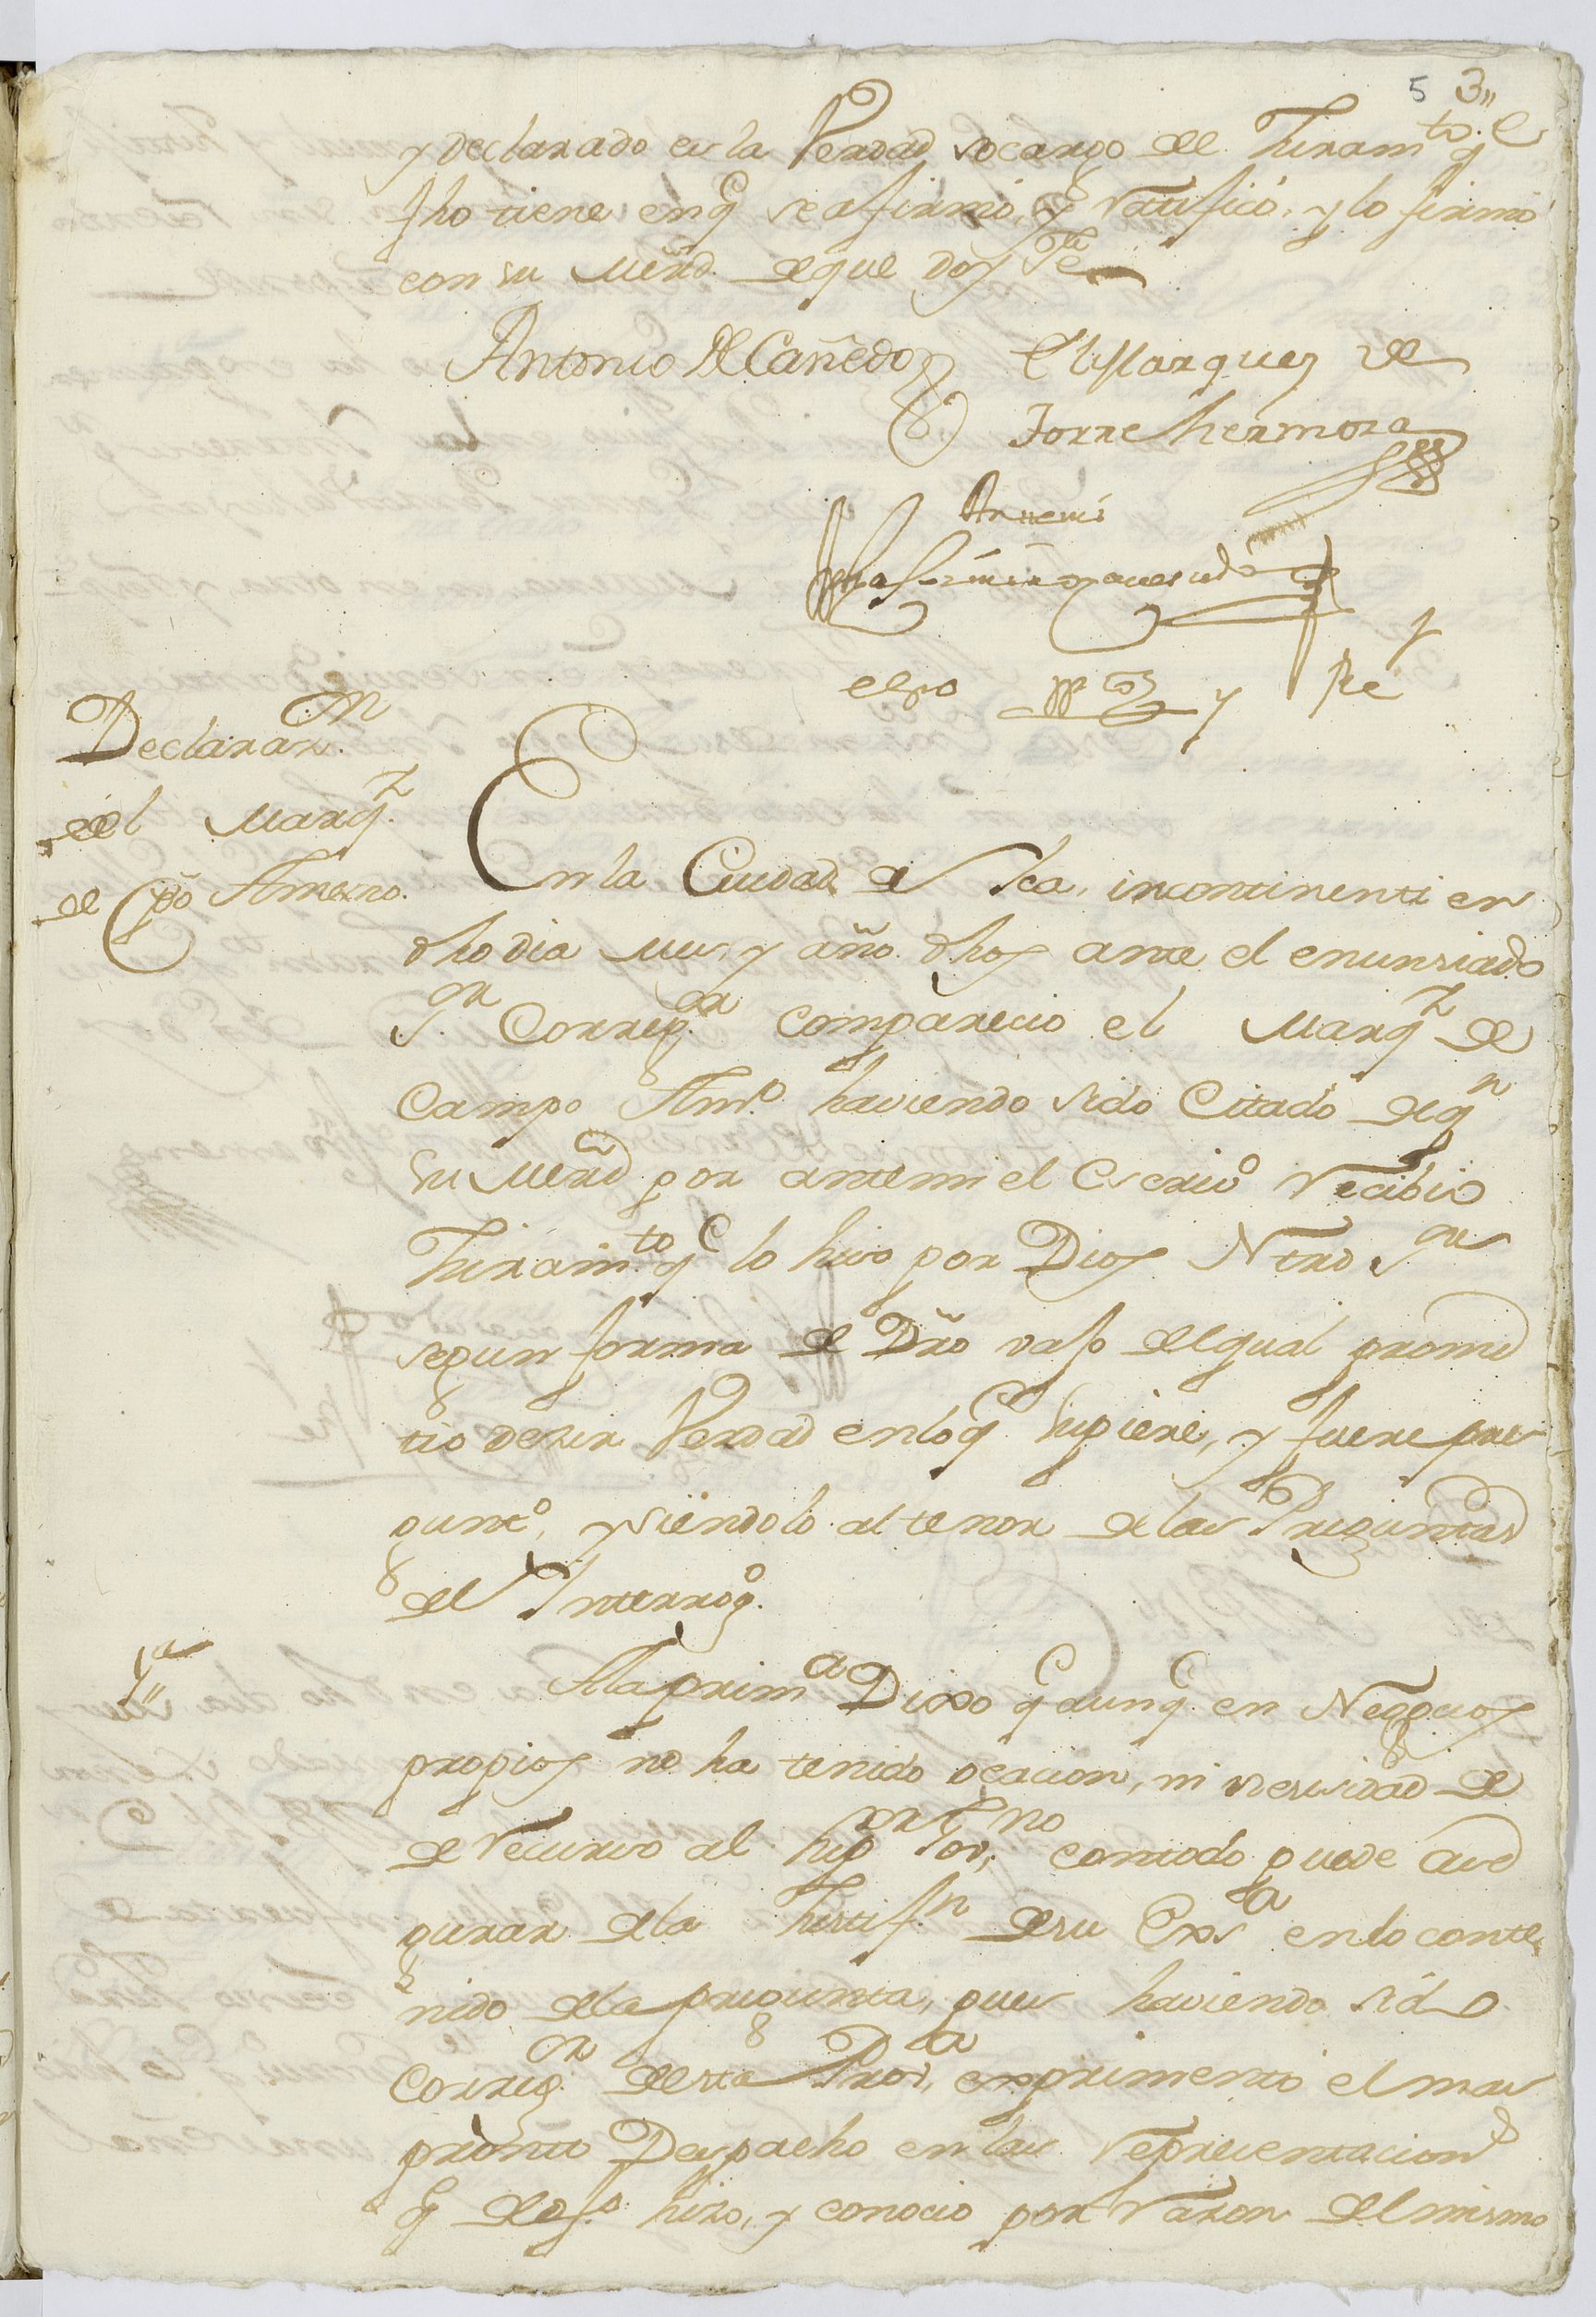 5 3,,
y declarado es la Verdad socargo del Juramto. q̃
fho tiene enq̃ se afirmó, y ratificó, y lo firmó
con su Merd. deque doy Fe
Antonio DCañedo El Marques de
Torre hermosa
Antemi
espo ppco y Re
Declaran.
del Marqz.
de Cpõ Ameno.
En la Ciudad de Ica, incontinenti en
dho dia mes, y año dhos ante el enunsiado
Sor. Corregor. comparecio el Marqz de
Campo Amo. haviendo sido Citado deqn
su Merd. por antemi el Escrivo. recibio
Juramto. q̃ lo hiso por Dios Ntro Sor
segun forma de Dro vajo delqual prome
tio desir Verdad enloq̃ supiere, y fuere pre
guntdo, y siendolo al tenor de las Preguntas
del Interrogo.
1a,,
Ala prima. Dixo q̃ aunq̃ en Negocios
propios no ha tenido ocacion, ni nesesidad de
de recurso al supor Govno, comodo puede ase
gurar dela Justifn desu Exa enlo conte,
nido dela pregunta, pues haviendo sido
Corregor. desta Prova, exprimento el mas
pronto Despacho en las representaciones
q̃ deofo. hizo, y conocio por razon del mismo